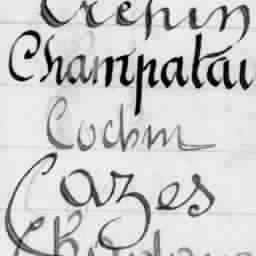 Crépin
Champatai
Cochin
Cazes